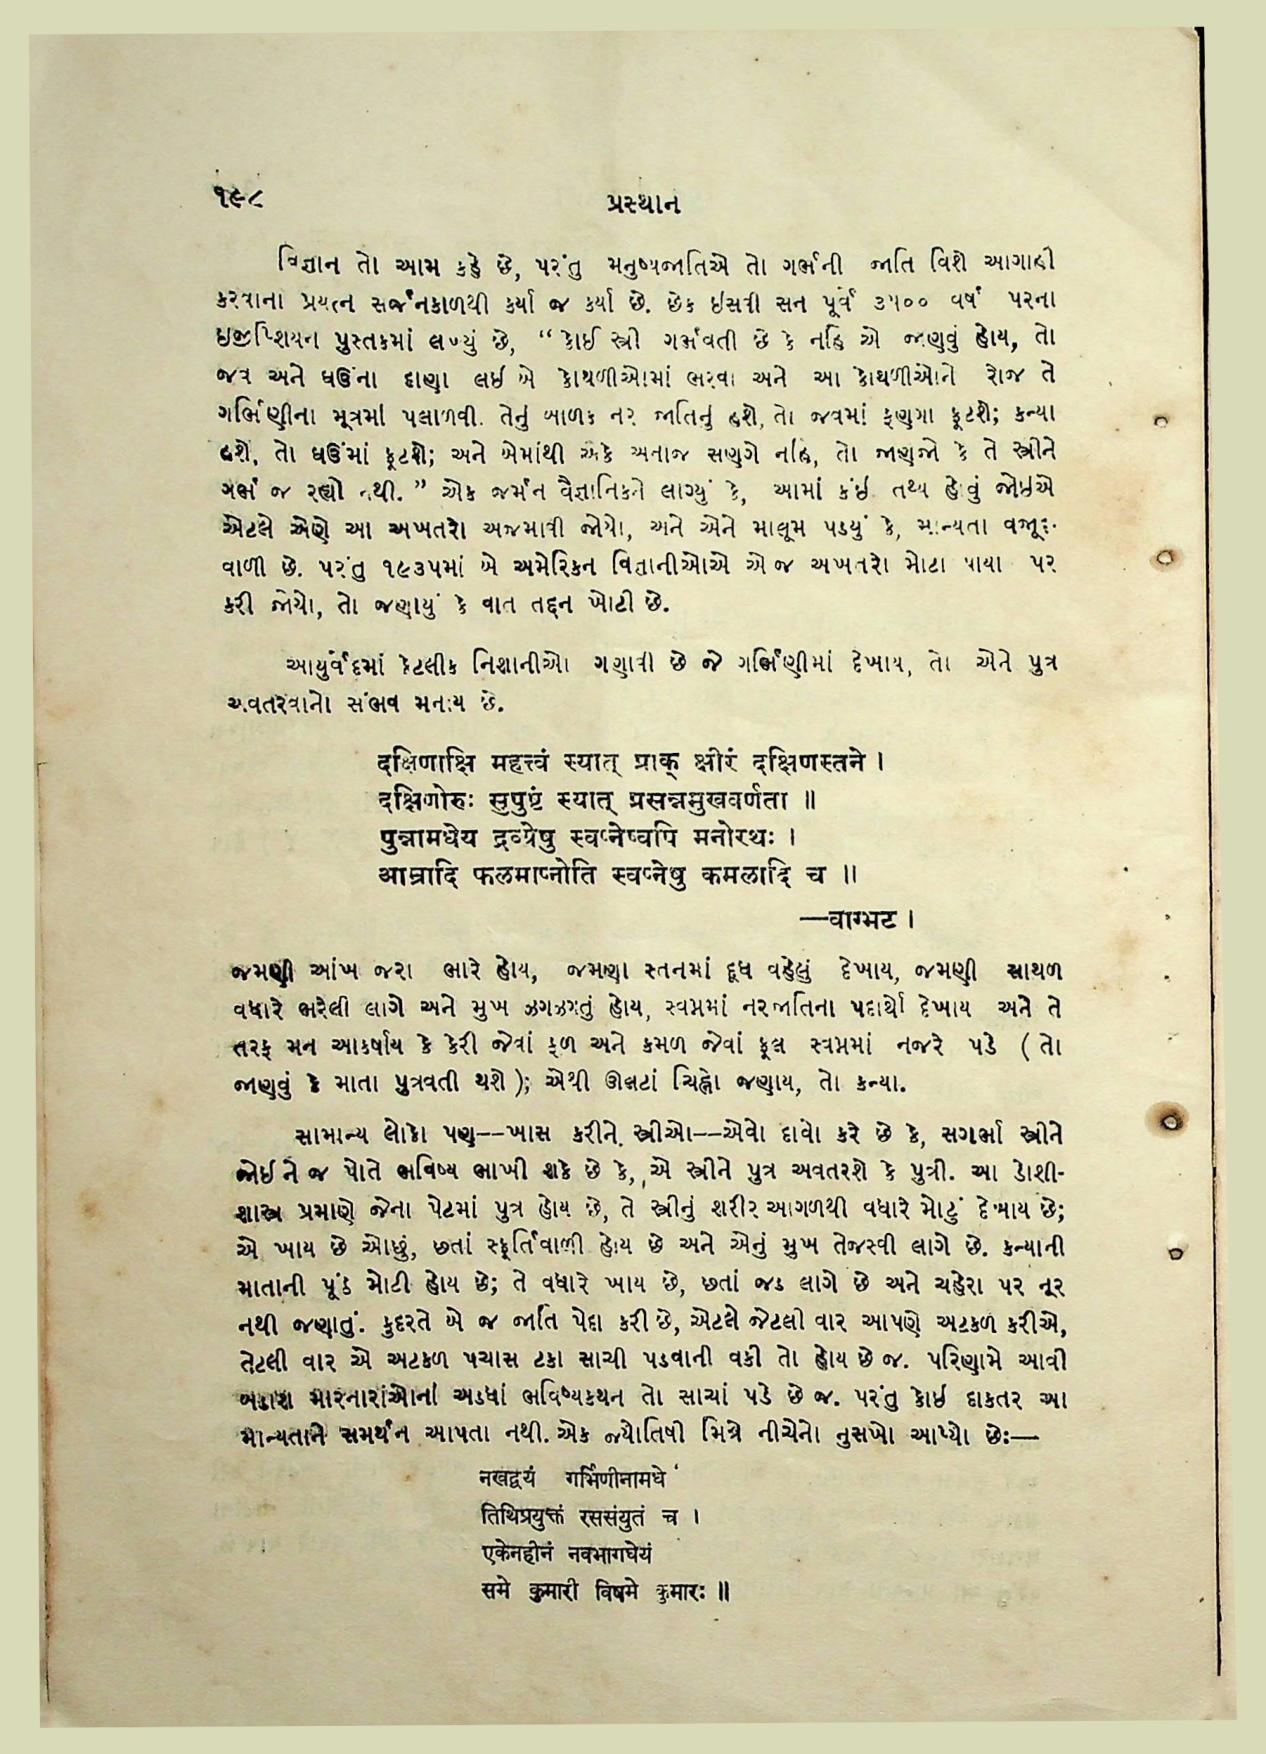 ૧૯૮
પ્રસ્થાન
વિજ્ઞાન તો આમ કહે છે, પરંતુ મનુષ્યજાતિએ તો ગર્ભની જાતિ વિશે આગાહી
કરવાના પ્રયત્ન સર્જનકાળથી કર્યા જ કર્યા છે. છેક ઇસવી સન પૂર્વે ૩૫૦૦ વર્ષ પરના
ઇજીપ્શિયન પુસ્તકમાં લખ્યું છે, “ કોઈ સ્ત્રી ગર્ભવતી છે કે નહિ એ જાણવું હોય, તો
જવ અને ઘઉંના દાણા લઈ બે કોથળીઓમાં ભરવા અને આ કોથળીઓને રોજ તે
ગર્ભિણીના મૂત્રમાં પલાળવી. તેનું બાળક નર જાતિનું હશે, તો જવમાં ફણગા ફૂટશે; કન્યા
હશે, તો ઘઉંમાં ફૂટશે; અને બેમાંથી એકે અનાજ સણગે નહિ, તો જાણજો કે તે સ્ત્રીને
ગર્ભ જ રહ્યો નથી. ” એક જર્મન વૈજ્ઞાનિકને લાગ્યું કે, આમાં કંઈ તથ્ય હોવું જોઈએ
એટલે એણે આ અખતરો અજમાવી જોયો, અને એને માલૂમ પડ્યું કે, માન્યતા વજૂદ-
વાળી છે. પરંતુ ૧૯૩૫માં બે અમેરિકન વિજ્ઞાનીઓએ એ જ અખતરો મોટા પાયા પર
કરી જોયો, તો જણાયું કે વાત તદ્દન ખોટી છે.
આયુર્વેદમાં કેટલીક નિશાનીઓ ગણાવી છે જે ગર્ભિણીમાં દેખાય, તો એને પુત્ર
અવતરવાનો સંભવ મનાય છે.
दक्षिणाक्षि महत्त्वं स्यात् प्राक् क्षीरं दक्षिणस्तने ।
दक्षिणोरुः सुपुष्टं स्यात् प्रसन्नमुखवर्णता ॥
पुन्नामधेय द्रव्येषु स्वप्नेष्वपि मनोरथः ।
आम्रादि फलमाप्नोति स्वप्नेषु कमलादि च ॥
—वाग्भट ।
જમણી આંખ જરા ભારે હોય, જમણા સ્તનમાં દૂધ વહેલું દેખાય, જમણી સાથળ
વધારે ભરેલી લાગે અને મુખ ઝગઝગતું હોય, સ્વપ્નમાં નરજાતિના પદાર્થો દેખાય અને તે
તરફ મન આકર્ષાય કે કેરી જેવાં ફળ અને કમળ જેવાં ફૂલ સ્વપ્નમાં નજરે પડે ( તો
જાણવું કે માતા પુત્રવતી થશે ); એથી ઊલટાં ચિહ્નો જણાય, તો કન્યા.
સામાન્ય લોકો પણ--ખાસ કરીને સ્ત્રીઓ--એવો દાવો કરે છે કે, સગર્ભા સ્ત્રીને
જોઈને જ પોતે ભવિષ્ય ભાખી શકે છે કે, એ સ્ત્રીને પુત્ર અવતરશે કે પુત્રી. આ ડોશી-
શાસ્ત્ર પ્રમાણે જેના પેટમાં પુત્ર હોય છે, તે સ્ત્રીનું શરીર આગળથી વધારે મોટું દેખાય છે;
એ ખાય છે ઓછું, છતાં સ્ફૂર્તિવાળી હોય છે અને એનું મુખ તેજસ્વી લાગે છે. કન્યાની
માતાની પૂંઠ મોટી હોય છે; તે વધારે ખાય છે, છતાં જડ લાગે છે અને ચહેરા પર નૂર
નથી જણાતું. કુદરતે બે જ જાતિ પેદા કરી છે, એટલે જેટલી વાર આપણે અટકળ કરીએ,
તેટલી વાર એ અટકળ પચાસ ટકા સાચી પડવાની વકી તો હોય છે જ. પરિણામે આવી
બડાશ મારનારાંઓનાં અડધાં ભવિષ્યકથન તો સાચાં પડે છે જ. પરંતુ કોઈ દાકતર આ
માન્યતાને સમર્થન આપતા નથી. એક જ્યોતિષી મિત્રે નીચેનો નુસખો આપ્યો છેઃ—
नखद्वयं गर्भिणीनामधे
तिथिप्रयुक्तं रससंयुतं च ।
एकेनहीनं नवभागधेयं
समे कुमारी विषमे कुमारः ॥